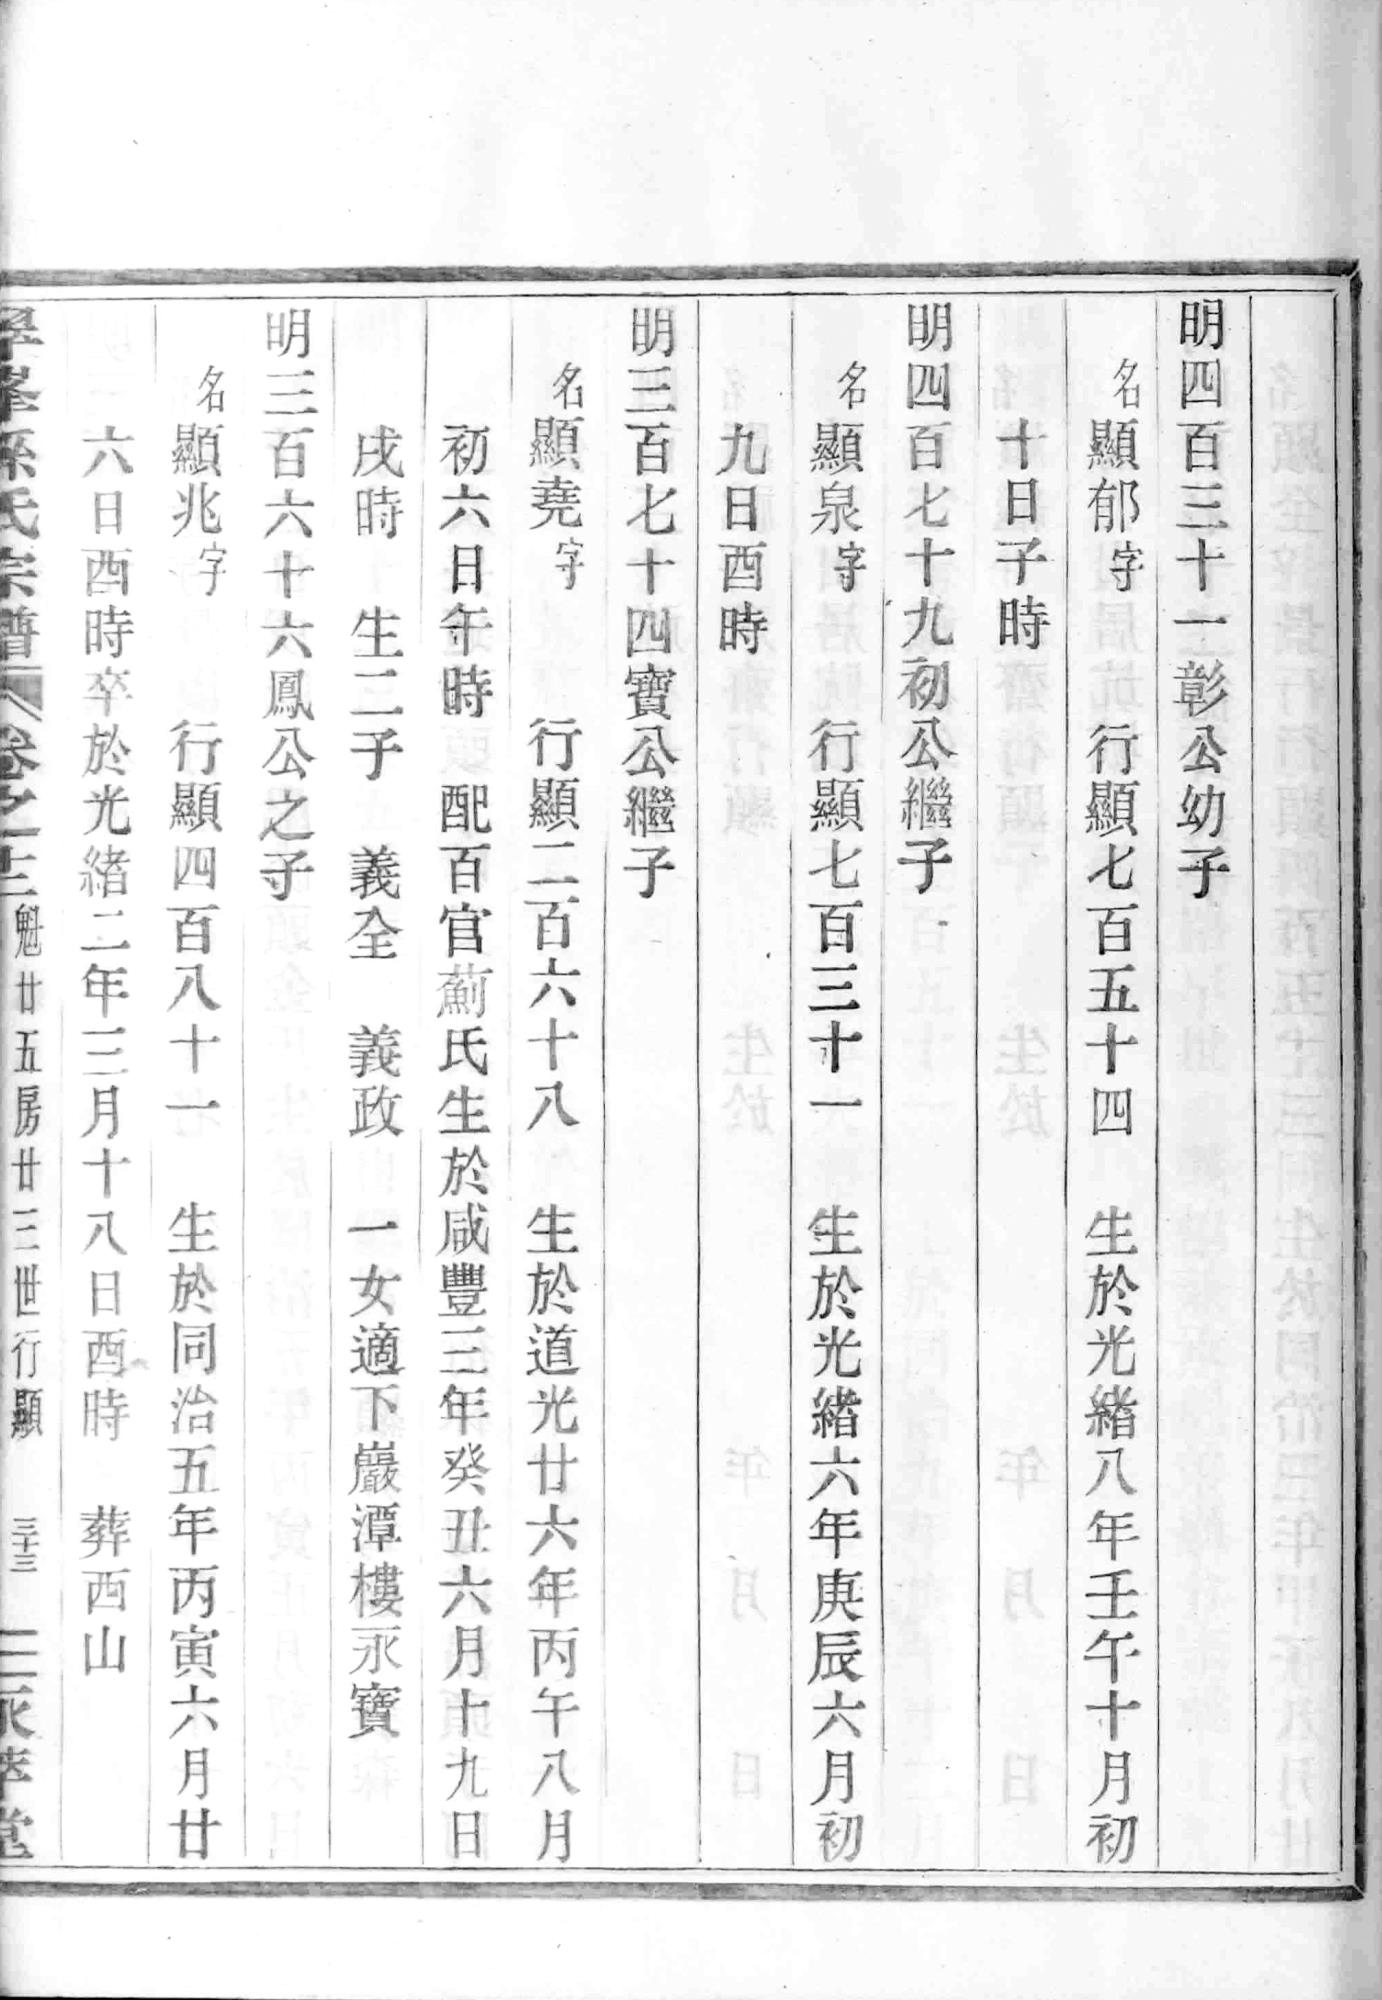 明四百三十一彰公幼子
名顯郁字　行顯七百五十四　生於光緒八年壬午十月初
十日子時
明四百七十九初公繼子
名顯泉字　行顯七百三十一　生於光緒六年庚辰六月初
九日酉時
明三百七十四寶公繼子
名顯堯字　行顯二百六十八　生於道光廿六年丙午八月
初六日午時　配百官薊氏生於咸豐三年癸丑六月十九日
戌時　生二子　義全　義政　一女適下巖潭樓永寶
明三百六十六鳳公之子
名顯兆字　行顯四百八十一　生於同治五年丙寅六月廿
六日酉時卒於光緒二年三月十八日酉時　葬西山
孫氏宗譜　卷之十二　魁廿五房廿三世行顯　三十三　永萃堂